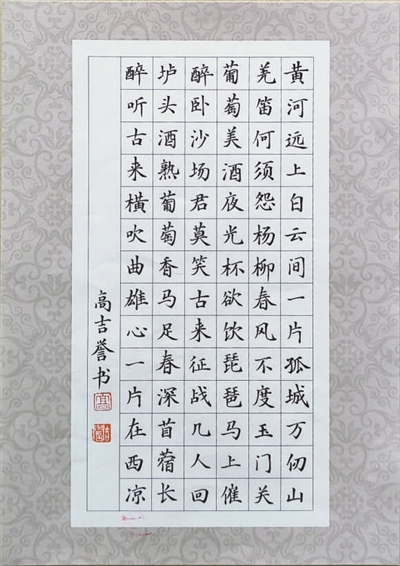 黄河远上白云间一片孤城万仞山
羌笛何须怨杨柳春风不度玉门关
葡萄美酒夜光杯欲饮琵琶马上催
醉卧沙场君莫笑古来征战几人回
垆头酒熟葡萄香马足春深苜蓿长
醉听古来横吹曲雄心一片在西凉
高吉誉书